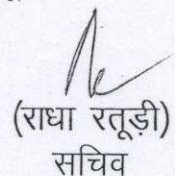 (राधा रतूड़ी)
सचिव